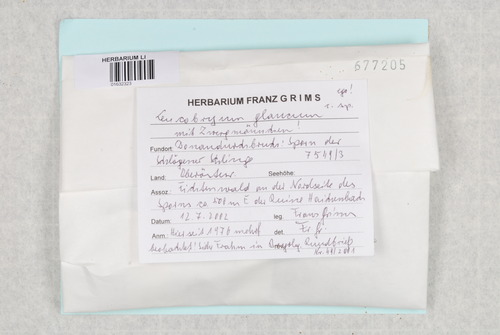 HERBARIUM LI
01632323
677205
HERBARIUM FRANZ GRIMS
cop!
c. sp.
Leucobryum glaucum
mit Zwergmännchen!
Fundort: Donaudurchbruch: Sporn der
Schlögener Schlinge 7549/3
Land: Oberösterr. Seehöhe:
Assoz.: Fichtenwald an der Nordseite des
Sporns ca. 500 m E der Ruine Haichenbach
Datum: 12.7.2002 leg. Franz Grims
Anm.: Hier seit 1970 mehrf. det. Fr. Gr.
beobachtet! Siehe Frahm in Bryolog. Rundbrief
Nr. 44/2001